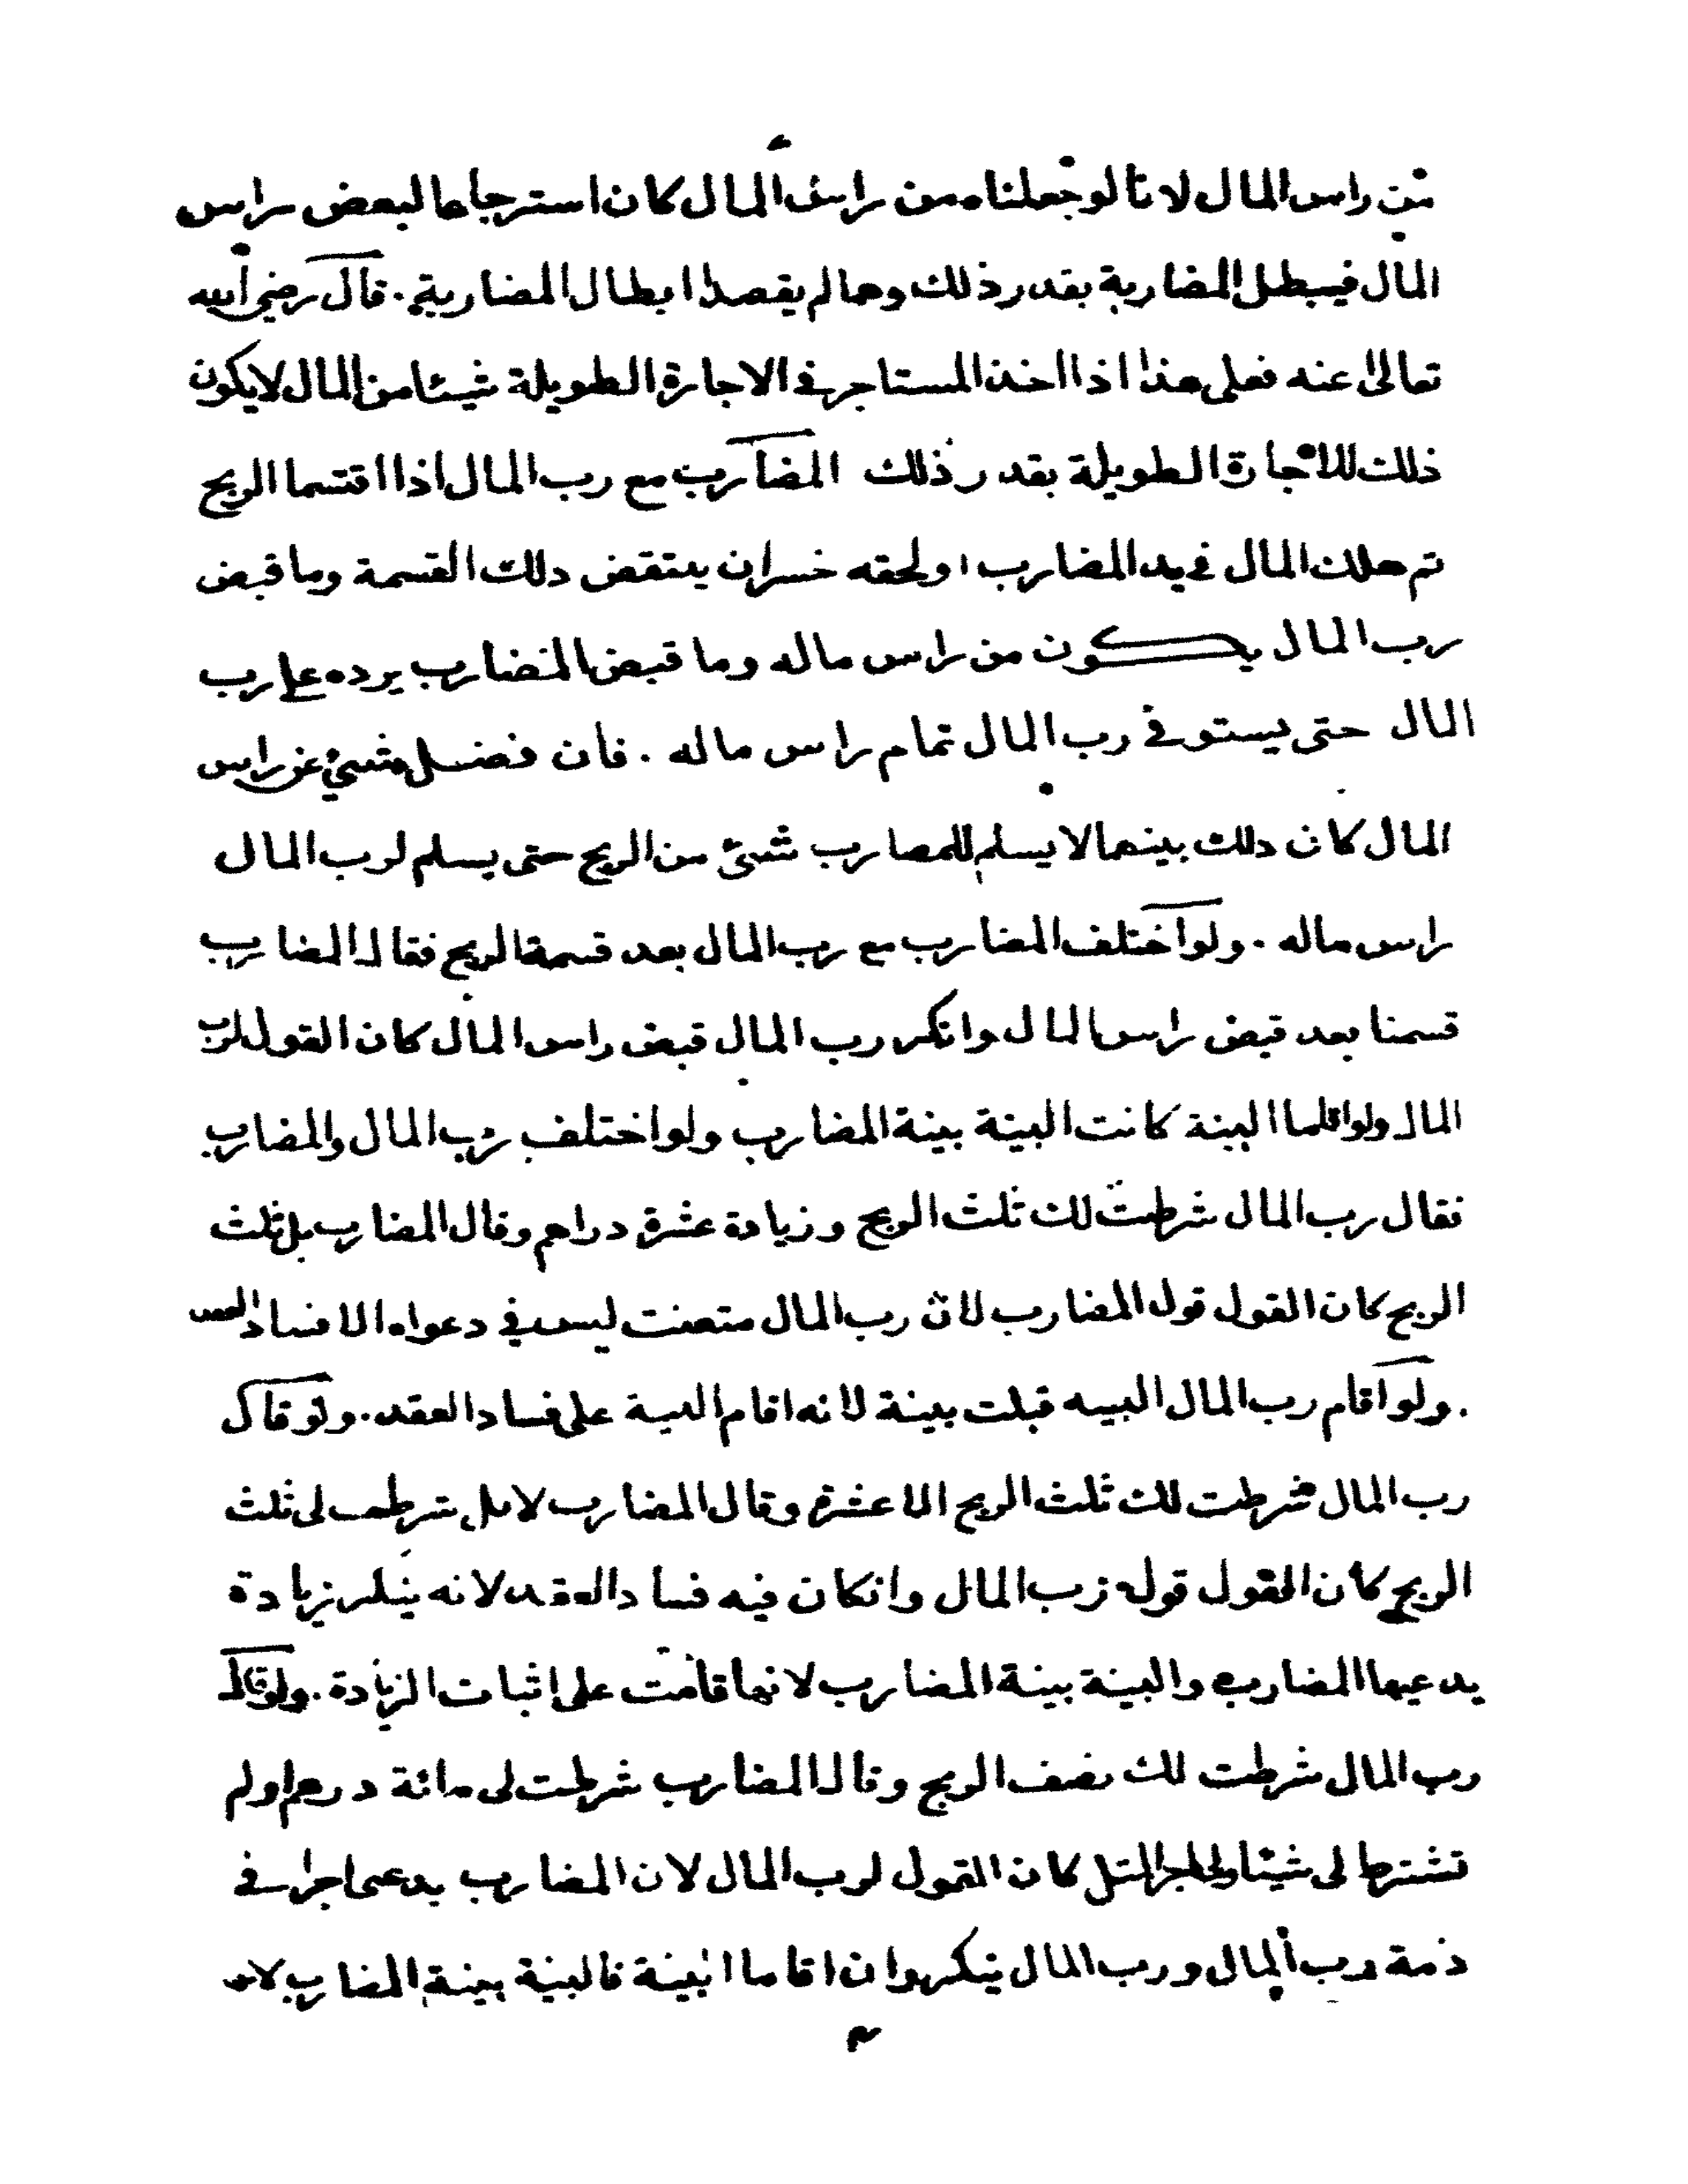 من راس المال لانا لو جعلناه من راس المال كان استرجاعا لبعض راس
المال فيبطل المضاربة بقدر ذلك وهما لم يقصدا ابطال المضاربة . قال رضي الله
تعالى عنه فعلى هذا اذا اخذ المستاجر في الاجارة الطويلة شيئا من المال لا يكون
ذلك للاجارة الطويلة بقدر ذلك المضارب مع رب المال اذا اقتسما الربح
ثم هلك المال في يد المضارب او لحقه خسران ينتقض ذلك القسمة وما قبض
رب المال يكون من راس ماله وما قبض المضارب يرده على رب
المال حتى يستوفى رب المال تمام راس ماله . فان فضل شيئ عن راس
المال كان دلك بينهما لا يسلم للمضارب شئ من الربح حتى يسلم لرب المال
راس ماله . ولو اختلف المضارب مع رب المال بعد قسمة الربح فقال المضارب
قسمنا بعد قبض راس المال وانكر رب المال قبض راس المال كان القول لرب
المال ولو اقاما البينة كانت البينة بينة المضارب ولو اختلف رب المال والمضارب
فقال رب المال شرطت لك ثلث الربح وزيادة عشرة دراهم وقال المضارب بل ثلث
الربح كان القول قول المضارب لان رب المال متعنت ليس في دعواه الا فساد العقد
. ولو اقام رب المال البينه قبلت بينة لانه اقام البينة على فساد العقد . ولو قال
رب المال شرطت لك ثلث الربح الا عشرة وقال المضارب لا بل شرطت لى ثلث
الربح كان القول قول رب المال وانكان فيه فساد العقد لانه ينكر زيادة
يدعيها المضارب والبينة بينة المضارب لانها قامت على اثبات الزيادة . ولو قال
رب المال شرطت لك نصف الربح وقال المضارب شرطت لى مائة درهم او لم
تشترط لى شيئا ولى اجر المثل كان القول لرب المال لان المضارب يدعى اجرا في
ذمة رب المال ورب المال ينكر وان اقاما البينة فالبينة بينة المضارب لانه